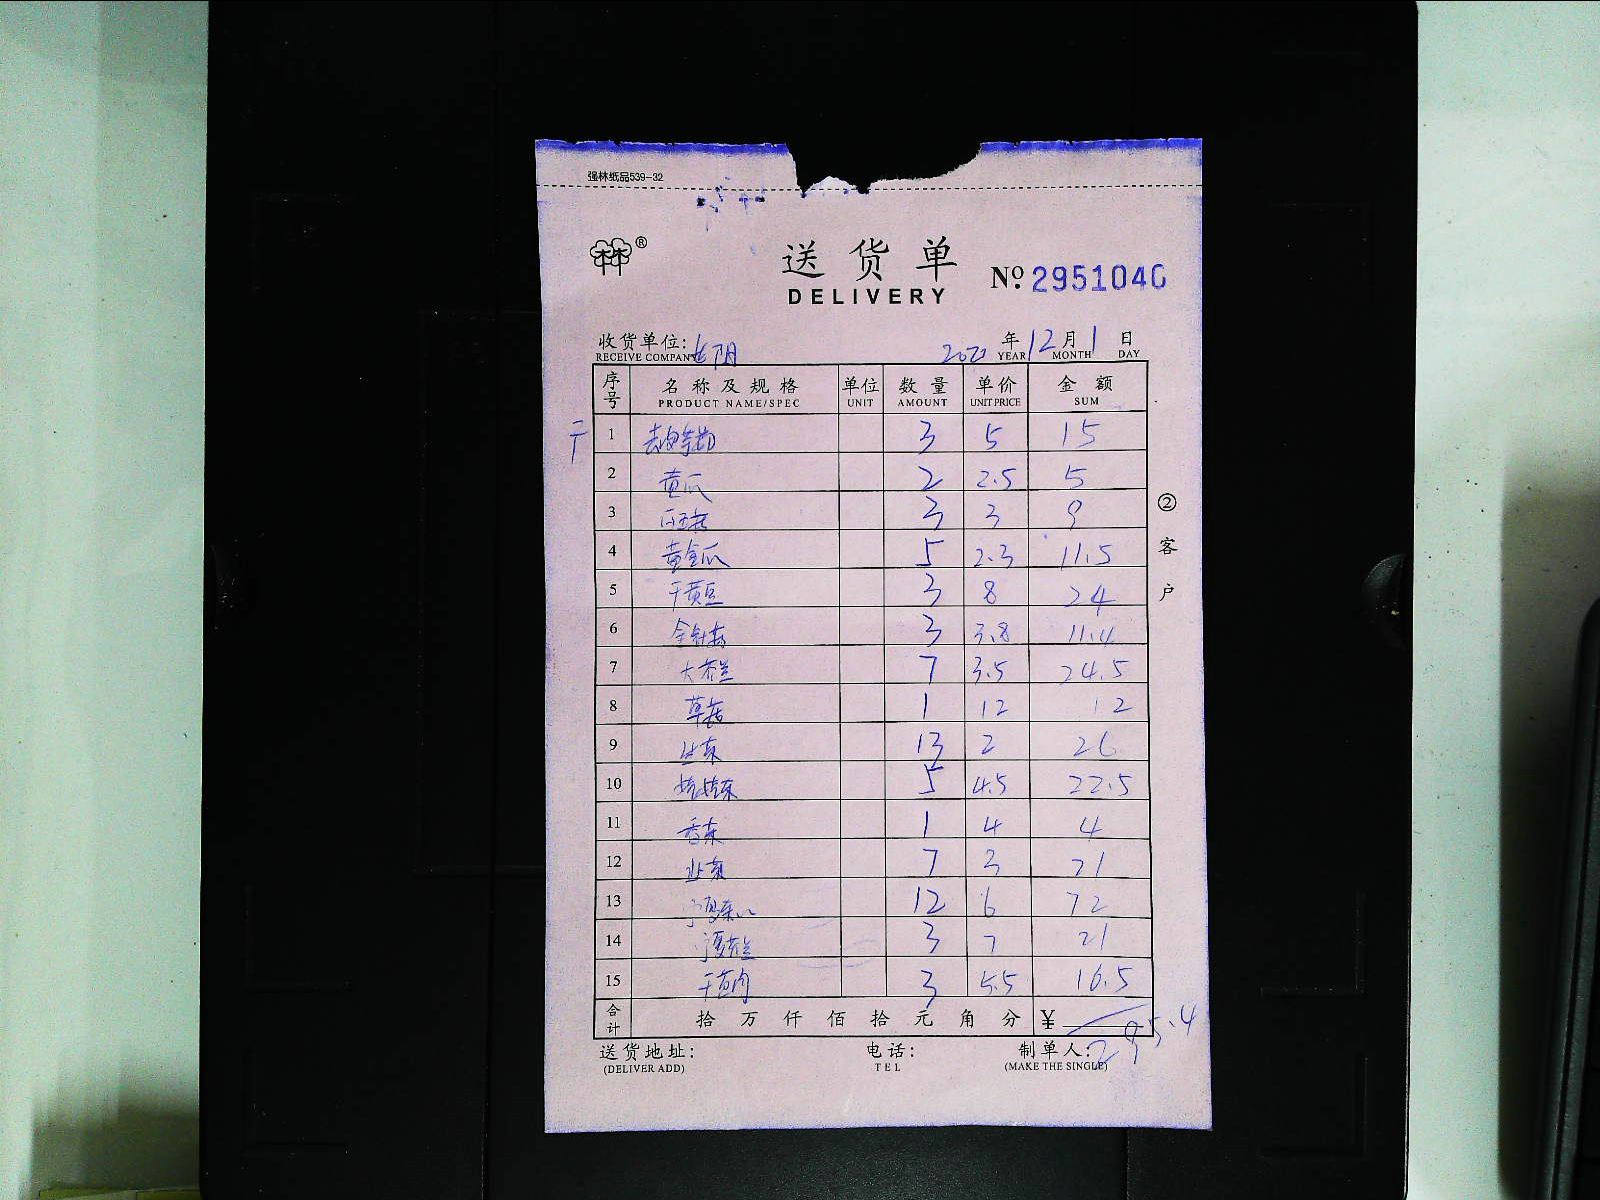 强林纸品539-32
®
送货单 No: 2951040
DELIVERY
收货单位: 年 12 月 1 日
RECEIVE COMPANY YEAR MONTH DAY
序号 名称及规格 单位 数量 单价 金额
PRODUCT NAME/SPEC UNIT AMOUNT UNIT PRICE SUM
1 3 5 15
2 黄瓜 2 2.5 5
3 3 3 9
4 黄金瓜 5 2.3 11.5
5 干黄豆 3 8 24
6 金针菇 3 3.8 11.4
7 大芥兰 7 3.5 24.5
8 草菇 1 12 12
9 13 2 26
10 5 4.5 22.5
11 香菜 1 4 4
12 7 3 21
13 宁夏菜心 12 6 72
14 宁夏芥兰 3 7 21
15 3 5.5 16.5
合计 拾 万 仟 佰 拾 元 角 分 ¥ 295.4
送货地址: 电话: 制单人:
(DELIVER ADD) TEL (MAKE THE SINGLE)
②客户